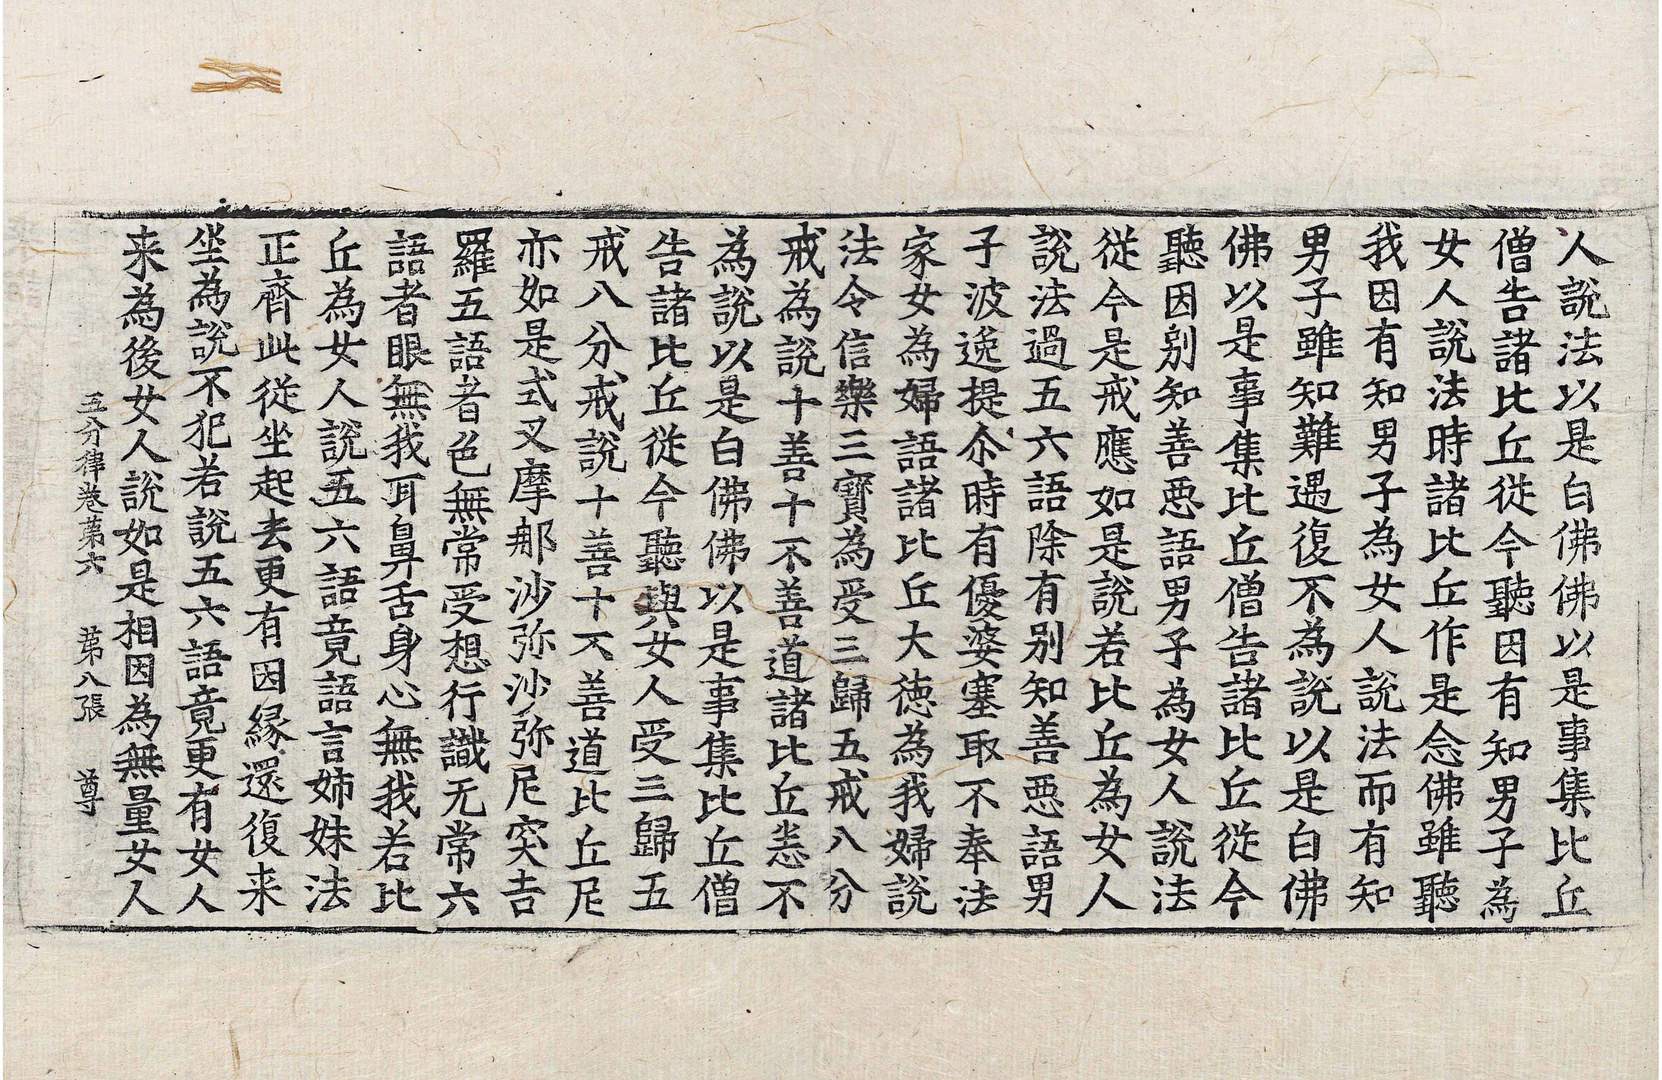 人説法以是白佛佛以是事集比丘
僧告諸比丘従今聽因有知男子為
女人説法時諸比丘作是念佛雖聽
我因有知男子為女人説法而有知
男子雖知難遇復不為説以是白佛
佛以是事集比丘僧告諸比丘従今
聽因别知善惡語男子為女人説法
從今是戒應如是説若比丘為女人
説法過五六語除有别知善惡語男
子波逸提尒時有優婆塞取不奉法
家女為婦語諸比丘大徳為我婦説
法令信樂三寳為受三歸五戒八分
戒為説十善十不善道諸比丘悉不
為説以是白佛佛以是事集比丘僧
告諸比丘従今聽與女人受三歸五
戒八分戒説十善十不善道比丘尼
亦如是式叉摩那沙弥沙弥尼突吉
羅五語者色無常受想行識无常六
語者眼無我耳鼻舌身心無我若比
丘為女人説五六語竟語言姉妹法
正齊此從坐起去更有因縁還復来
坐為説不犯若説五六語竟更有女人
来為後女人説如是相因為無量女人
五分律卷第六　第八張　尊